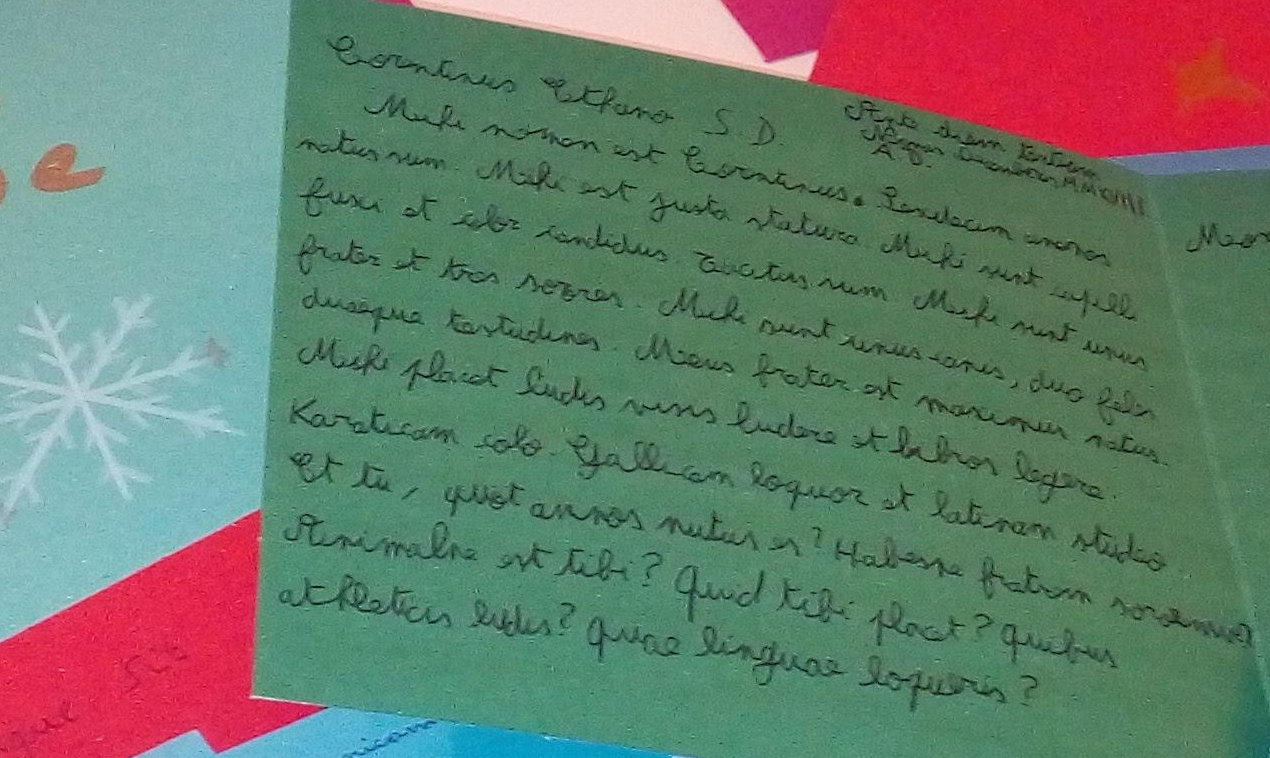 Corentinus Ethano S. D.
Ante diem tertium
Nonas Decembres MMXVIII
A
Mihi nomen est Corentinus. Sexdecim annos
natus sum. Mihi est justa statura. Mihi sunt capilli
fusci et color candidus sum. Mihi sunt unus
frater et tres sorores. Mihi sunt unus canis, duo feles
duaeque testudines. Meus frater est maximus natus.
Mihi placet ludis visis ludere et libros legere.
Karaticam colo. Gallicam loquor et latinam studeo.
Et tu, quot annos natus es? Habesne fratrem sororemve?
Animalne est tibi? Quid tibi placet? Quibus
athleticis ludis? Quae linguae loqueris?
Meo
e
que sis
nicam